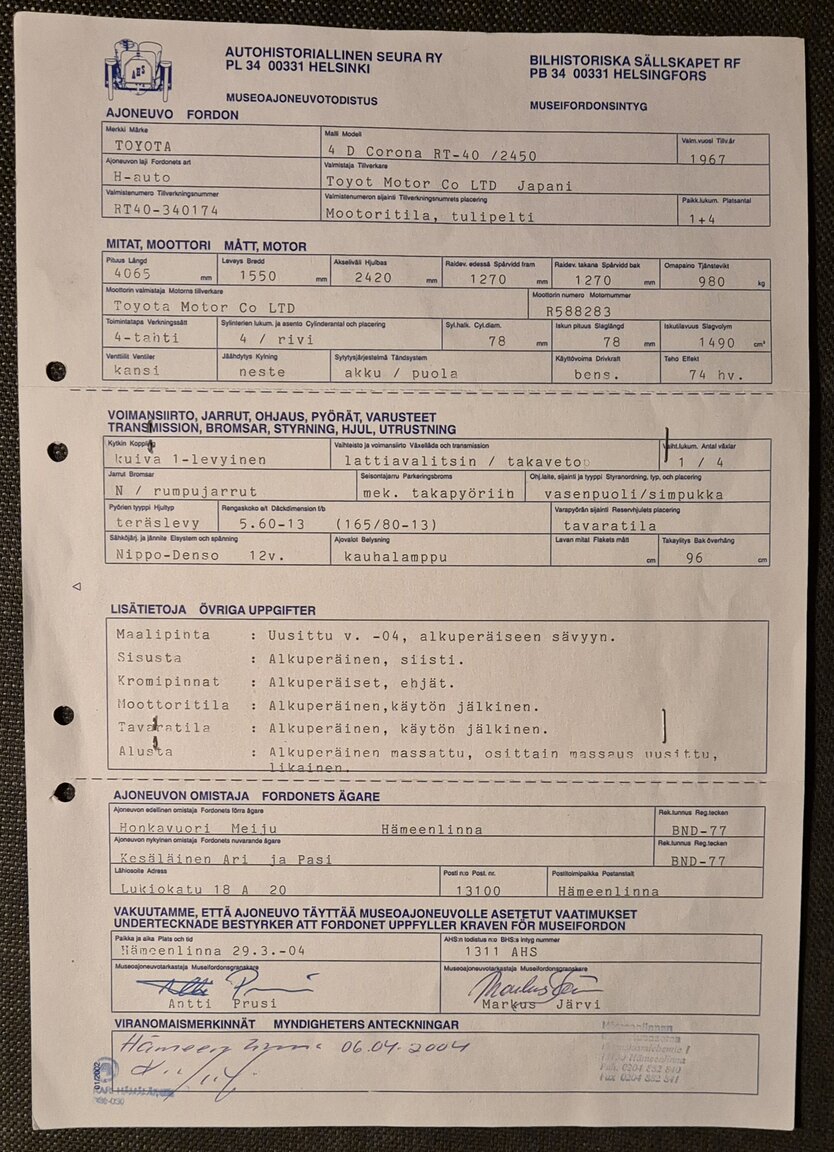 AHS
AUTOHISTORIALLINEN SEURA RY
PL 34 00331 HELSINKI
BILHISTORISKA SÄLLSKAPET RF
PB 34 00331 HELSINGFORS
MUSEOAJONEUVOTODISTUS
MUSEIFORDONSINTYG
AJONEUVO FORDON
Merkki Märke
Malli Modell
Valm.vuosi Tillv.år
TOYOTA
4 D Corona RT-40 /2450
1967
Ajoneuvon laji Fordonets art
Valmistaja Tillverkare
H-auto
Toyot Motor Co LTD Japani
Valmistenumero Tillverkningsnummer
Valmistenumeron sijainti Tillverkningsnumrets placering
Paikk.lukum. Platsantal
RT40-340174
Mootoritila, tulipelti
1+4
MITAT, MOOTTORI MÅTT, MOTOR
Pituus Längd
Leveys Bredd
Akseliväli Hjulbas
Raidev. edessä Spårvidd fram
Raidev. takana Spårvidd bak
Omapaino Tjänstevikt
4065 mm
1550 mm
2420 mm
1270 mm
1270 mm
980 kg
Moottorin valmistaja Motorns tillverkare
Moottorin numero Motornummer
Toyota Motor Co LTD
R588283
Toimintatapa Verkningssätt
Sylinterien lukum. ja asento Cylinderantal och placering
Syl.halk. Cyl.diam.
Iskun pituus Slaglängd
Iskutilavuus Slagvolym
4-tahti
4 / rivi
78 mm
78 mm
1490 cm³
Venttiilit Ventiler
Jäähdytys Kylning
Sytytysjärjestelmä Tändsystem
Käyttövoima Drivkraft
Teho Effekt
kansi
neste
akku / puola
bens.
74 hv.
VOIMANSIIRTO, JARRUT, OHJAUS, PYÖRÄT, VARUSTEET
TRANSMISSION, BROMSAR, STYRNING, HJUL, UTRUSTNING
Kytkin Koppling
Vaihteisto ja voimansiirto Växellåda och transmission
Vaiht.lukum. Antal växlar
kuiva 1-levyinen
lattiavalitsin / takaveto
1 / 4
Jarrut Bromsar
Seisontajarru Parkeringsbroms
Ohj.laite, sijainti ja tyyppi Styranordning, typ, och placering
N / rumpujarrut
mek. takapyöriin
vasenpuoli/simpukka
Pyörien tyyppi Hjultyp
Rengaskoko e/t Däckdimension f/b
Varapyörän sijainti Reservhjulets placering
teräslevy
5.60-13 (165/80-13)
tavaratila
Sähköjärj. ja jännite Elsystem och spänning
Ajovalot Belysning
Lavan mitat Flakets mått
Takaylitys Bak överhäng
Nippo-Denso 12v.
kauhalamppu
cm
96 cm
LISÄTIETOJA ÖVRIGA UPPGIFTER
Maalipinta : Uusittu v. -04, alkuperäiseen sävyyn.
Sisusta : Alkuperäinen, siisti.
Kromipinnat : Alkuperäiset, ehjät.
Moottoritila : Alkuperäinen,käytön jälkinen.
Tavaratila : Alkuperäinen, käytön jälkinen.
Alusta : Alkuperäinen massattu, osittain massaus uusittu,
likainen.
AJONEUVON OMISTAJA FORDONETS ÄGARE
Ajoneuvon edellinen omistaja Fordonets förra ägare
Rek.tunnus Reg.tecken
Honkavuori Meiju Hämeenlinna
BND-77
Ajoneuvon nykyinen omistaja Fordonets nuvarande ägare
Rek.tunnus Reg.tecken
Kesäläinen Ari ja Pasi
BND-77
Lähiosoite Adress
Posti n:o Post. nr.
Postitoimipaikka Postanstalt
Lukiokatu 18 A 20
13100
Hämeenlinna
VAKUUTAMME, ETTÄ AJONEUVO TÄYTTÄÄ MUSEOAJONEUVOLLE ASETETUT VAATIMUKSET
UNDERTECKNADE BESTYRKER ATT FORDONET UPPFYLLER KRAVEN FÖR MUSEIFORDON
Paikka ja aika Plats och tid
AHS:n todistus n:o BHS:s intyg nummer
Hämeenlinna 29.3.-04
1311 AHS
Museoajoneuvotarkastaja Museifordonsgranskare
Museoajoneuvotarkastaja Museifordonsgranskare
Antti Prusi
Markus Järvi
VIRANOMAISMERKINNÄT MYNDIGHETERS ANTECKNINGAR
Hämeenlinna 06.04.2004
Hämeenlinna
Puh. 0204 852 840
Fax 0204 852 841
01/2002